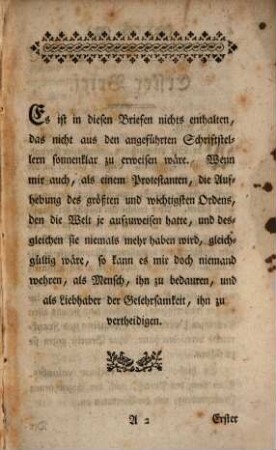 Es ist in diesen Briefen nichts enthalten,
das nicht aus den angeführten Schriftstel-
lern sonnenklar zu erweisen wäre. Wenn
mir auch, als einem Protestanten, die Auf-
hebung des größten und wichtigsten Ordens,
den die Welt je aufzuweisen hatte, und des-
gleichen sie niemals mehr haben wird, gleich-
gültig wäre, so kann es mir doch niemand
wehren, als Mensch, ihn zu bedauren, und
als Liebhaber der Gelehrsamkeit, ihn zu
vertheidigen.
A 2 Erster